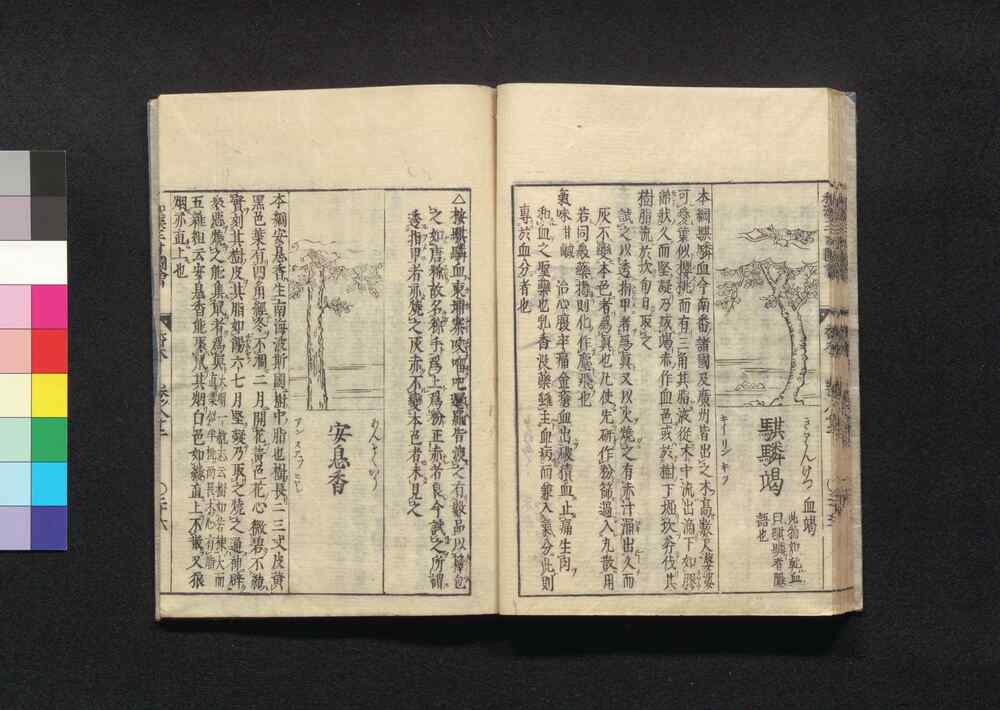 きりんけつ
騏驎竭
キーリン キツ
血竭
此物如乾血
曰騏驎者隱
語也
本綱騏驎血今南番諸國及廣州皆出之木高數丈婆娑
可愛葉似櫻桃而有三角其脂液從木中流出滴下如膠
飴狀久而堅凝乃成竭赤作血色或於樹下掘坎斧伐其
樹脂流於坎旬日取之
試之以透指甲者爲眞又以火燒之有赤汁涌出久而
灰不變本色者爲眞也凡使先研作粉篩過入丸散用
若同衆藥擣則化作塵飛也
氣味 甘鹹 治心腹卒痛金瘡血出破積血止痛生肉
和血之聖藥也乳香没藥雖主血病而兼入氣分此則
專於血分者也
△按騏驎血東埔寨咬𠺕吧暹羅皆渡之有數品以籜包
之如唐糉故名糉手爲上爲粉正赤者良今試之所謂
透指甲者希燒之灰亦不變本色者未見之
あんそくかう
安息香
本綱安息香生南海波斯國樹中脂也樹長二三丈皮黃
黑色葉有四角經冬不凋二月開花黃色花心微碧不結
實刻其樹皮其膠如飴六七月堅凝乃取之燒之通神辟
衆惡燒之能集鼠者爲眞
五雜組云安息香能聚鼠其烟白色如縷直上不散又狼
烟亦直上也